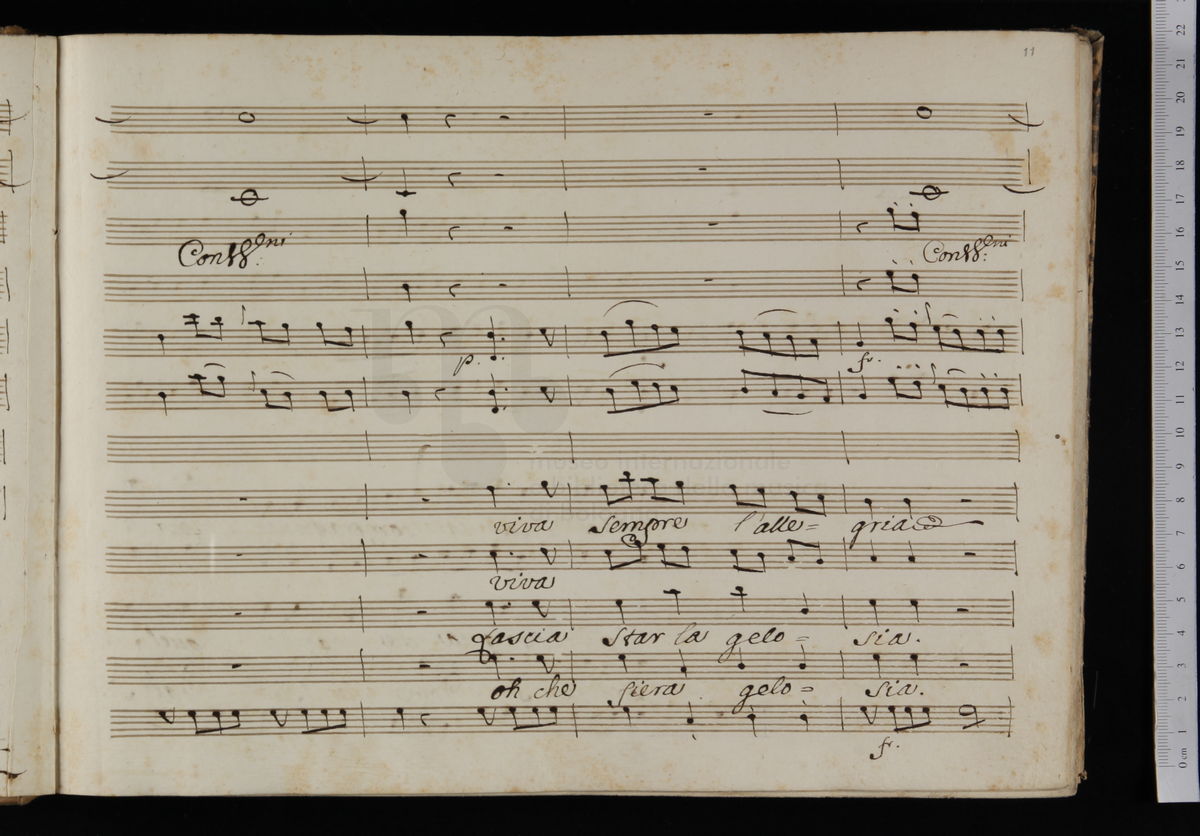 11
Con VV:ni Con VV:ni
p. fr.
viva sempre l'alle= gria
viva
Lascia star la gelo= sia.
oh che fiera gelo= sia.
fr.
museo internazionale
0 cm 1 2 3 4 5 6 7 8 9 10 11 12 13 14 15 16 17 18 19 20 21 22